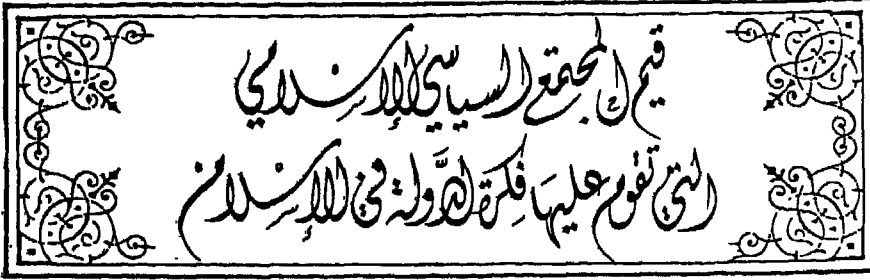 قيم المجتمع السياسي الإسلامي
التي تقوم عليها فكرة الدَّولة في الإسلام